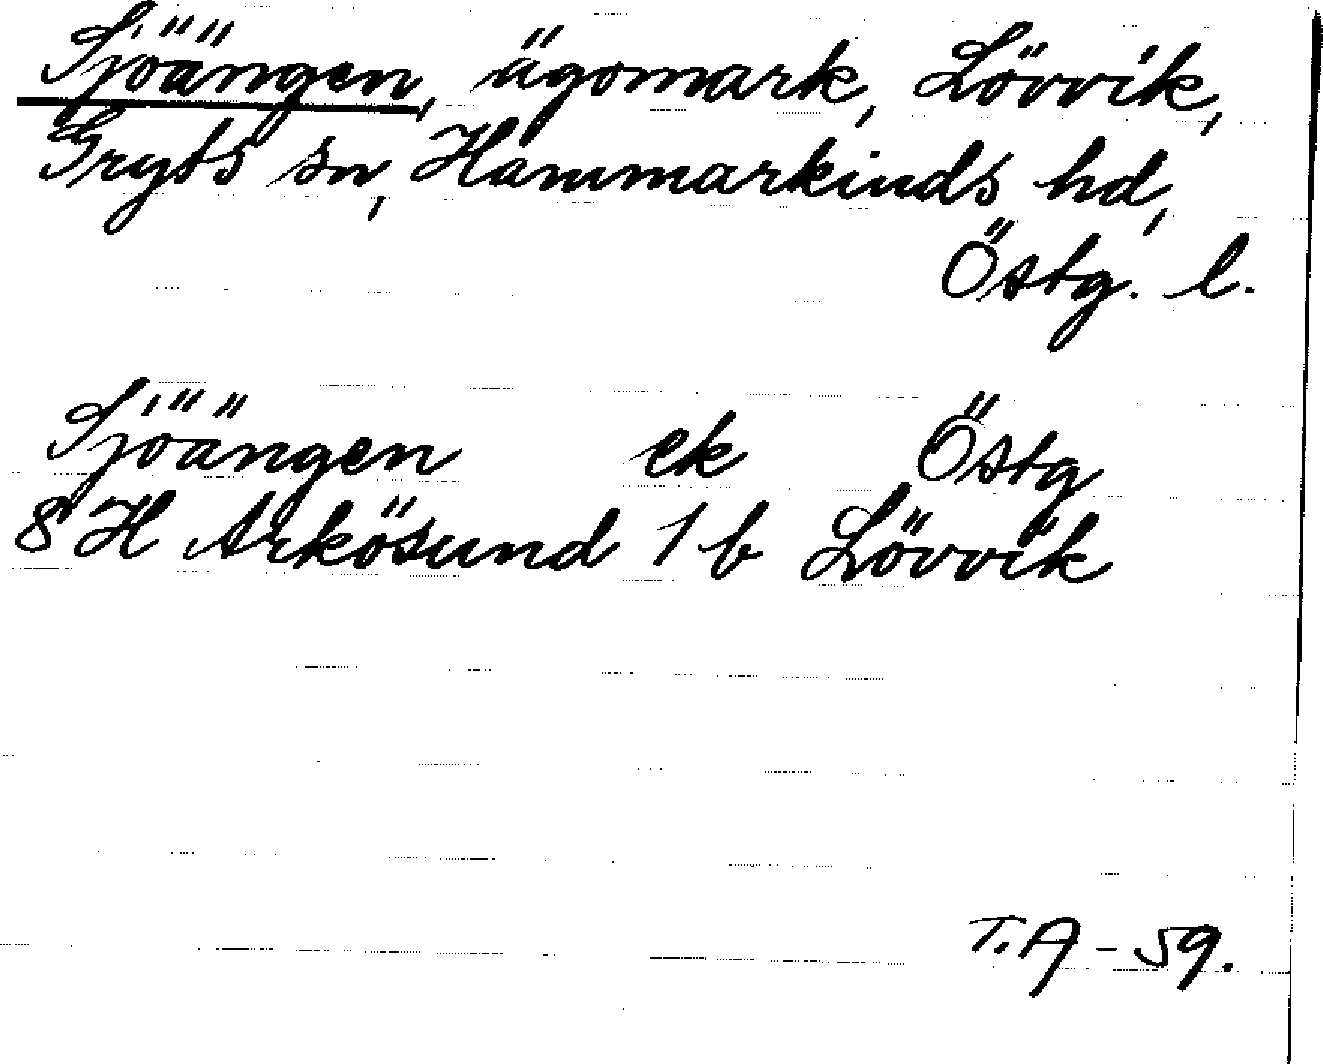 Sjöängen, ägomark, Lövvik,
Gryts sn, Hammarkinds hd,
Östg. l.
Sjöängen ek Östg
8 H Arkösund 1 b Lövvik
T.A - 59.